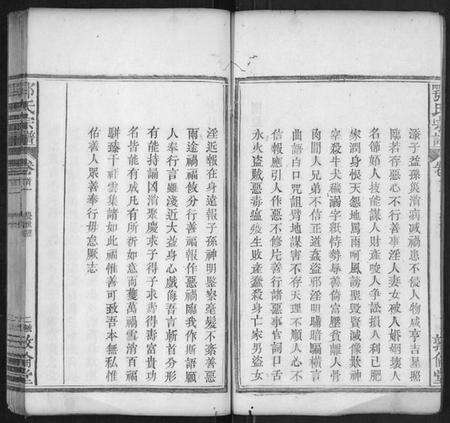 添子益孫災消病减禍患不侵人物咸寧吉星照
臨若存惡心不行善事淫人妻女破人婚姻壞人
名節妬人技能謀人財產唆人爭訟損人利己肥
家潤身恨天怨地罵雨呵風謗聖毀賢滅像欺神
宰殺牛犬穢溺字紙恃勢辱善倚富壓貧離人骨
肉間人兄弟不信正道姦盜邪淫明瞞暗騙橫言
曲語白口咒詛背地謀害不存天理不順人心不
信報應引人作惡不修片善行諸惡事官詞口舌
水火盜賊惡毒瘟疫生敗產蠢殺身亡家男盜女
淫近報在身遠報子孫神明鑒察毫髮不紊善惡
兩途禍福攸分行善福報作惡禍臨我作斯語願
人奉行言雖淺近大益身心戲侮吾言斬首分形
有能持誦凶消聚慶求子得子求壽得壽富貴功
名皆能有成凡有所祈如意而獲萬禍雪消百福
駢臻千祥雲集諸如此福惟善可致吾本無私惟
佑善人眾善奉行毋怠厥志
氏宗譜 卷首
敦倫堂